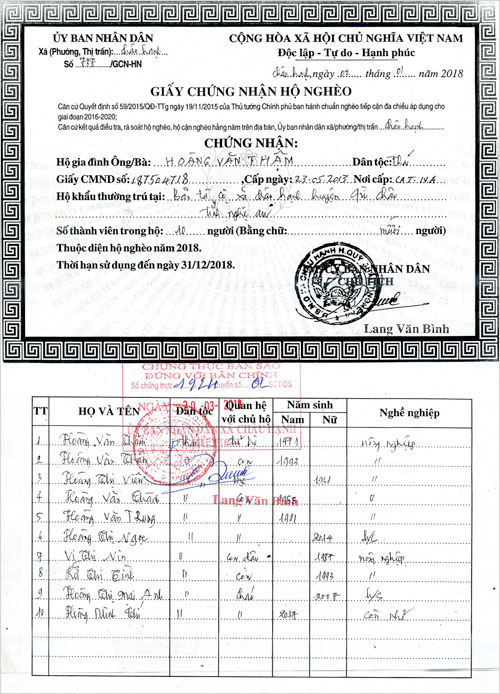 ỦY BAN NHÂN DÂN
Xã (Phường, Thị trấn): Châu Hạnh
Số 777 /GCN-HN
CỘNG HÒA XÃ HỘI CHỦ NGHĨA VIỆT NAM
Độc lập - Tự do - Hạnh phúc
Châu Hạnh, ngày 02 tháng 01 năm 2018
GIẤY CHỨNG NHẬN HỘ NGHÈO
Căn cứ Quyết định số 59/2015/QĐ-TTg ngày 19/11/2015 của Thủ tướng Chính phủ ban hành chuẩn nghèo tiếp cận đa chiều áp dụng cho
giai đoạn 2016-2020;
Căn cứ kết quả điều tra, rà soát hộ nghèo, hộ cận nghèo hằng năm trên địa bàn, Ủy ban nhân dân xã/phường/thị trấn Châu Hạnh
CHỨNG NHẬN:
Hộ gia đình Ông/Bà: HOÀNG VĂN THẮM Dân tộc: Thái
Giấy CMND số: 187504718 Cấp ngày: 23.05.2013 Nơi cấp: CAT-N.A
Hộ khẩu thường trú tại: bản xã Châu Hạnh huyện Quỳ Châu
Tỉnh Nghệ an
Số thành viên trong hộ: 10 người (Bằng chữ: mười người)
Thuộc diện hộ nghèo năm 2018.
Thời hạn sử dụng đến ngày 31/12/2018.
TM. ỦY BAN NHÂN DÂN
CHỦ TỊCH
Lang Văn Bình
CHỨNG THỰC BẢN SAO
ĐÚNG VỚI BẢN CHÍNH
Số chứng thực 1924 quyển số 01 SCT/BS
NGÀY 20-03-2018
ỦY BAN NHÂN DÂN XÃ CHÂU HẠNH
Lang Văn Bình
TT HỌ VÀ TÊN Dân tộc Quan hệ với chủ hộ Năm sinh Nam Nữ Nghề nghiệp
1 Hoàng Văn Thắm Thái chủ hộ nông nghiệp
2 Hoàng Văn con 1993 "
3 Hoàng Thị Viên "
4 Hoàng Văn " con "
5 Hoàng Văn Thung " " 1981 "
6 Hoàng Thị Ngọc " 2014 h/s
7 Vi Thị Vin " con dâu 1987 nông nghiệp
8 Thị Tình " con 1993 "
9 Hoàng Thị Mai Anh " cháu 2007 h/s
10 Minh " " 2017 còn nhỏ